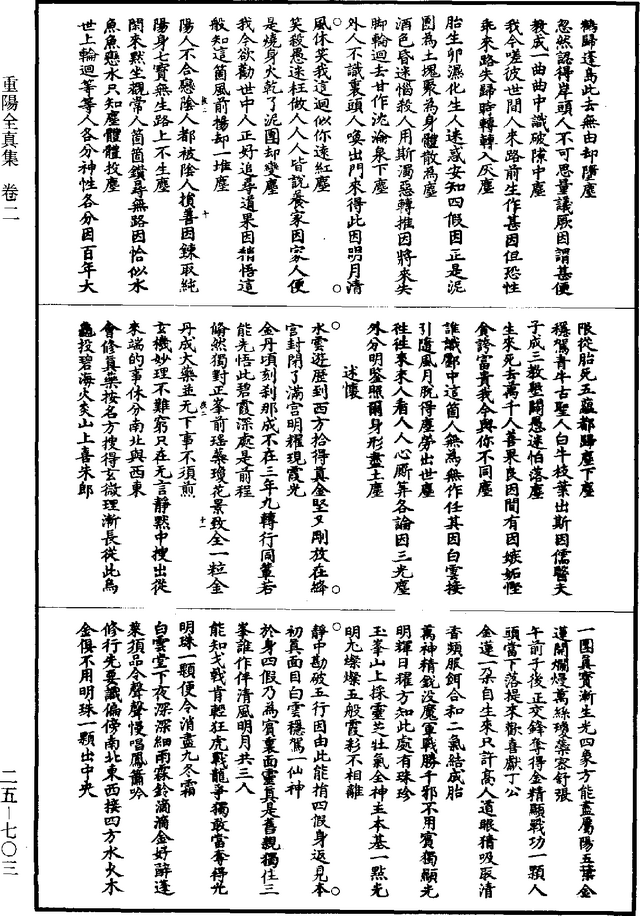 重陽全真集 卷二
鶴歸蓬島此去無由却墮塵
忽然認得岸頭人不可思量議厭因謂甚便
教成一曲曲中識破隙中塵
我今嗟彼世間人來路前生作甚因但恐性
乖來路失歸時轉轉入灰塵
胎生卯濕化生人迷惑安知四假因正是泥
團為土塊聚為身體散為塵
酒色昏迷惱殺人用斯濁惡轉推因將來失
脚輪迴去甘作沈淪泉下塵
外人不識裏頭人喚出門來得此因明月清
風休笑我這迴似你遠紅塵
笑殺愚迷枉做人人人皆說養家因家人便
是燒身火乾了泥團却變塵
我今欲勸世中人正好追尋道果因稍悟這
般知這箇風前揚却一堆塵
陽人不合戀陰人都被陰人損善因鍊取純
陽身七寶無生路上不生塵
閑來默坐觀常人箇箇鑽尋無路因恰似水
魚魚戀水只知塵體體投塵
世上輪迴等等人各分神性各分因百年大
限從胎死五蘊都歸塵下塵
穩駕青牛古聖人白牛枝葉出斯因儒醫夫
子成三教塹闢愚迷怕落塵
生來死去萬千人善果良因間有因嫉妬慳
貪誇富貴我今與你不同塵
誰識酆中這箇人無為無作任其因白雲接
引隨風月脫得塵勞出世塵
往往來來人看人人心厮算各論因三光塵
外分明鑒照爾身形盡土塵
述懷
水雲遊歷到西方拾得真金堅又剛放在絳
宮封閉了滿宮明耀現霞光
金丹頃刻剎那成不在三年九轉行同輩若
能先悟此碧霞深處是前程
翛然獨對正峯前瑶蘂瓊花景致全一粒金
丹成大藥並無下事不須煎
玄機妙理不難窮只在無言靜默中搜出從
來端的事休分南北與西東
會修真樂按名方搜得玄微理漸長從此烏
龜投碧海火炎山上喜朱郎
一團真實漸生光四象方能盡屬陽五葉金
蓮開爛熳萬絲瑛蘂密舒張
午前子後正交鋒奪得金精顯戰功一顆人
頭當下落提來歡喜獻丁公
金蓮一朵自生來只許高人道眼猜吸取清
香頻服餌合和二氣結成胎
萬神精銳没魔軍戰勝千邪不用賓獨顯光
明輝日耀方知此處有珠珍
玉峯山上採靈芝壯氣全神玉本基一點光
明九燦燦五般霞彩不相離
靜中勘破五行因由此能捎四假身返見本
初真面目白雲穩駕一仙神
於身四假乃為賓裏面靈真是舊親獨住三
峯誰作伴清風明月共三人
能知戈戰肯輕狂虎戰龍爭獨敢當奪得光
明珠一顆便令消盡九冬霜
白雲堂下夜深深細雨霖鈴滴滴金好辭蓬
萊須品令聲聲慢唱鳳簫吟
修行先要識偏傍南北東西接四方水火木
金俱不用明珠一顆出中央
二五—七〇三